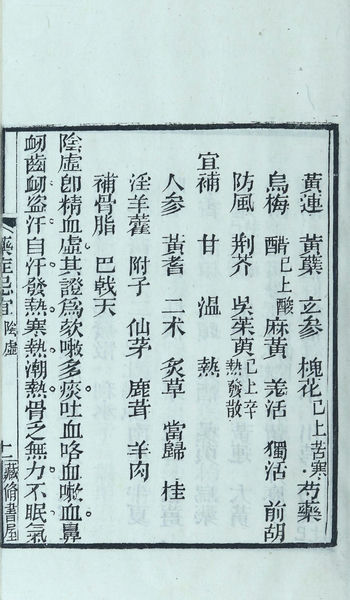 黃蓮 黃蘗 玄參 槐花已上苦寒 芍藥
烏梅 醋已上酸 麻黃 羗活 獨活 前胡
防風 荆芥 吳茱萸已上辛熱發散
宜補 甘 溫 熱
人參 黃耆 二术 炙草 當歸 桂
淫羊藿 附子 仙茅 鹿茸 羊肉
補骨脂 巴戟天
陰虛卽精血虛其證爲欬嗽多痰吐血咯血嗽血鼻
衂齒衂盜汗自汗發熱寒熱潮熱骨乏無力不眠氣
藥症忌宜 陰虛 十一 藏修書屋